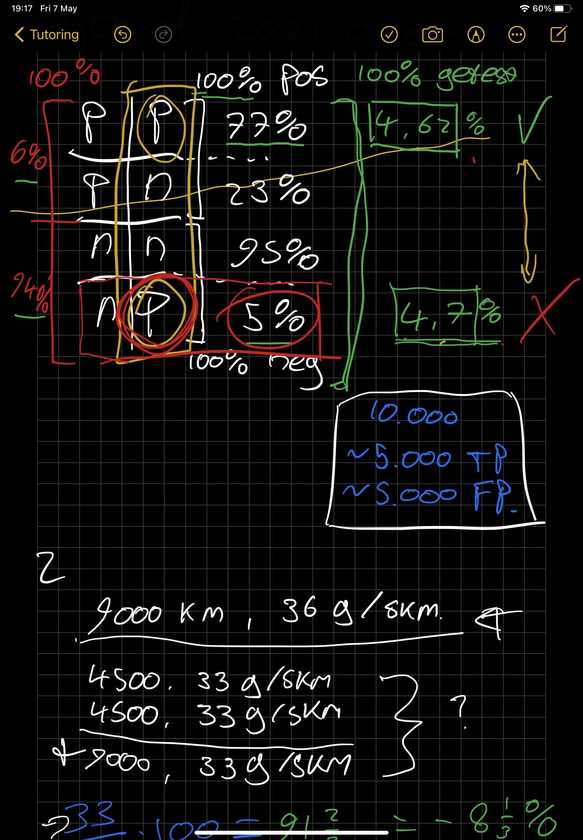 19:17 Fri 7 May 60%
Tutoring
100% 100% pos 100% getest
P P 77% 4,62%
6%
P n 23%
n n 95%
94%
n P 5% 4,7%
100% neg
10.000
~5.000 TP
~5.000 FP.
2
9000 KM, 36 g/SKM.
4500, 33 g/SKM
4500, 33 g/SKM
?
+ 9000, 33 g/SKM
33 . 100 = 91 2/3 = - 8 1/3 %